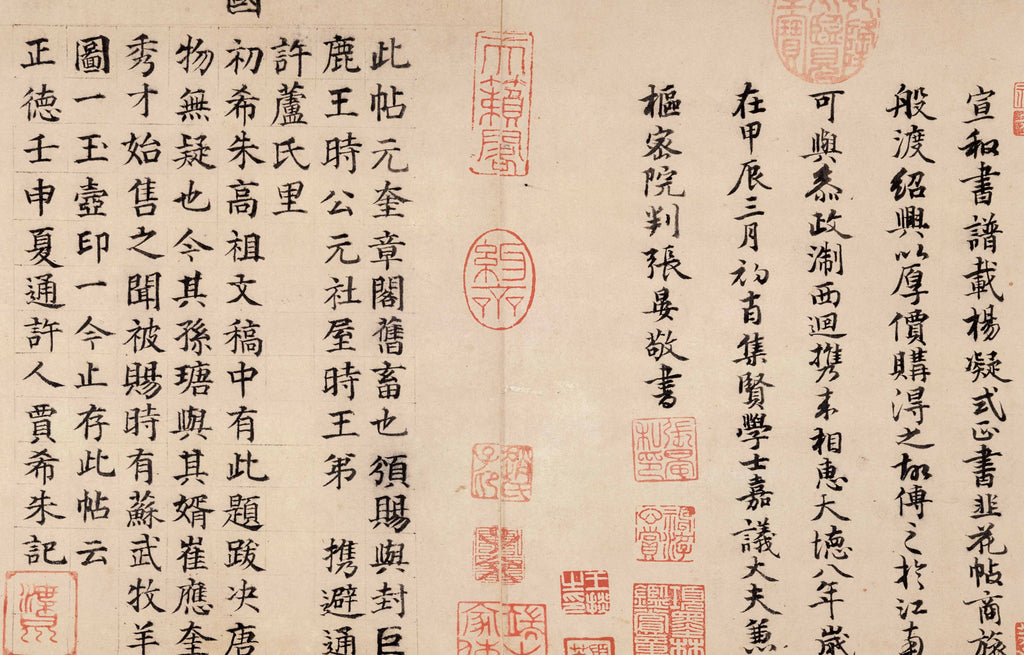 宣和書譜載楊凝式正書韭花帖商旅
般渡紹興以厚價購得之故傳之於江南
可與叅政淛西迴携来相惠大徳八年歲
在甲辰三月初吉集賢學士嘉議大夫蕙
樞宻院判張晏敬書
天籟閣
張晏私印
此帖元奎章閣舊畜也頒賜與封巨
鹿王時公元社屋時王弟 携避通
許蘆氏里
國
初希朱高祖文稿中有此題跋决唐
物無疑也今其孫瑭與其婿崔應奎
秀才始售之聞被賜時有蘇武牧羊
圖一玉壼印一今止存此帖云
正德壬申夏通許人賈希朱記